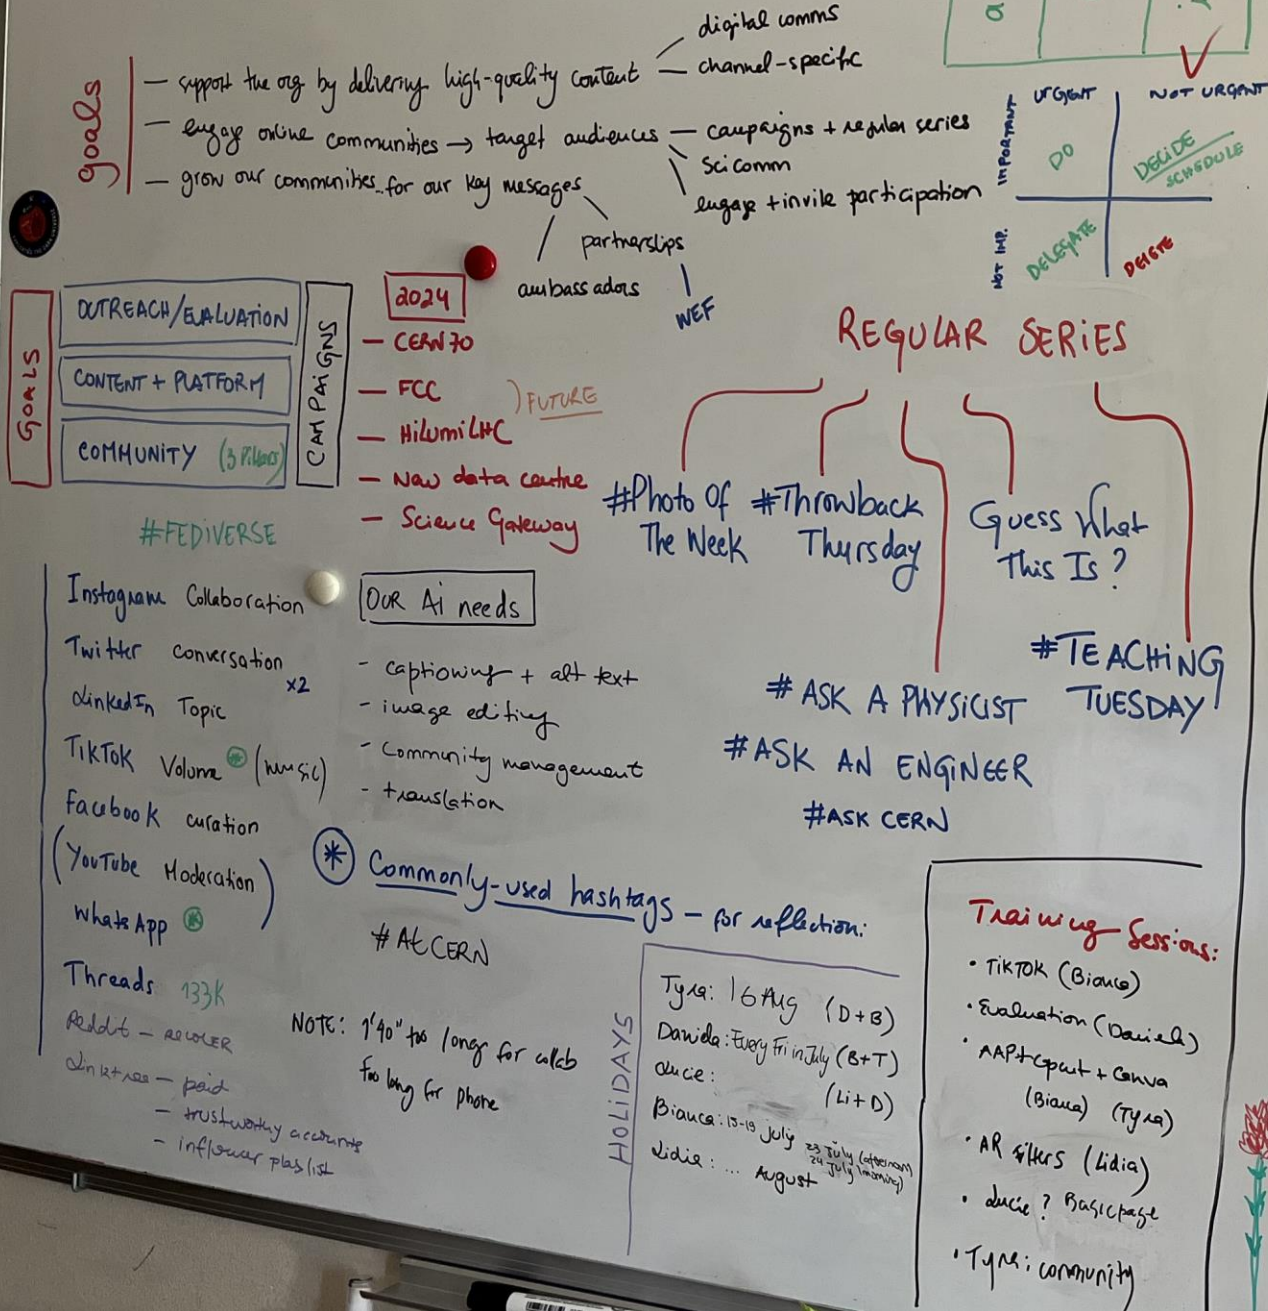 goals
— support the org by delivering high-quality content
digital comms
— channel-specific
— engage online communities → target audiences — campaigns + regular series
scicomm
engage + invite participation
— grow our communities.. for our key messages
partnerslips
WEF
ambassadors
URGENT
NOT URGENT
IMPORTANT
DO
DECIDE
SCHEDULE
NOT IMP.
DELEGATE
DELETE
GOALS
OUTREACH/EVALUATION
CONTENT + PLATFORM
COMMUNITY (3 Pillars)
CAMPAIGNS
2024
— CERN70
— FCC
— HiLumiLHC
) FUTURE
— New data centre
— Science Gateway
#FEDIVERSE
REGULAR SERIES
#Photo Of
The Week
#Throwback
Thursday
Guess What
This Is?
#TEACHING
TUESDAY
# ASK A PHYSICIST
#ASK AN ENGINEER
#ASK CERN
Instagram Collaboration
Twitter conversation
x2
LinkedIn Topic
TikTok Volume * (music)
Facebook curation
(YouTube Moderation)
WhatsApp
Threads 133K
Reddit —
Linktree — paid
— trustworthy accounts
—
OUR Ai needs
- captioning + alt text
- image editing
- Community management
- translation
* Commonly-used hashtags — for reflection:
#AtCERN
NOTE: 1'40" too long for collab
too long for phone
HOLIDAYS
Tyra: 16 Aug (D+B)
Daniela: Every Fri in July (B+T)
Lucie: (Li+D)
Bianca: 15-19 July
23 July (afternoon)
24 July (morning)
Lidia: ... August
Training Sessions:
• TIKTOK (Bianca)
• Evaluation (Daniela)
• AAP + Capcut + Canva
(Bianca) (Tyra)
• AR filters (Lidia)
• Lucie? Basic page
• Tyra: community